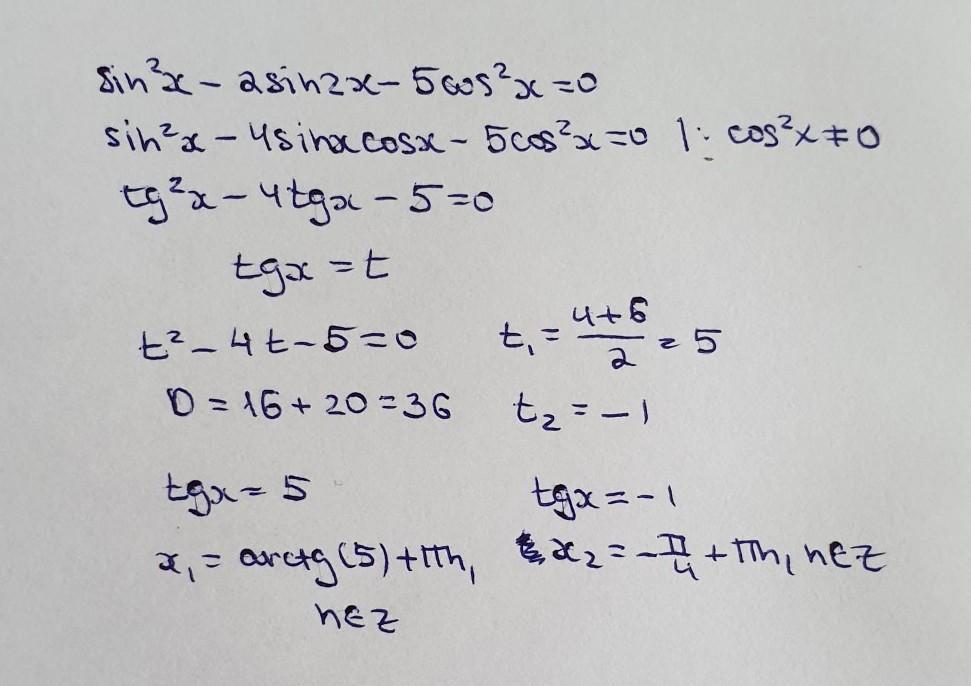 sin²x - 2sin2x - 5cos²x = 0
sin²x - 4sinxcosx - 5cos²x = 0 | : cos²x ≠ 0
tg²x - 4tgx - 5 = 0
tgx = t
t² - 4t - 5 = 0 t₁ = (4+6)/2 = 5
D = 16 + 20 = 36 t₂ = -1
tgx = 5 tgx = -1
x₁ = arctg(5) + πn, x₂ = -π/4 + πn, n∈Z
n∈Z